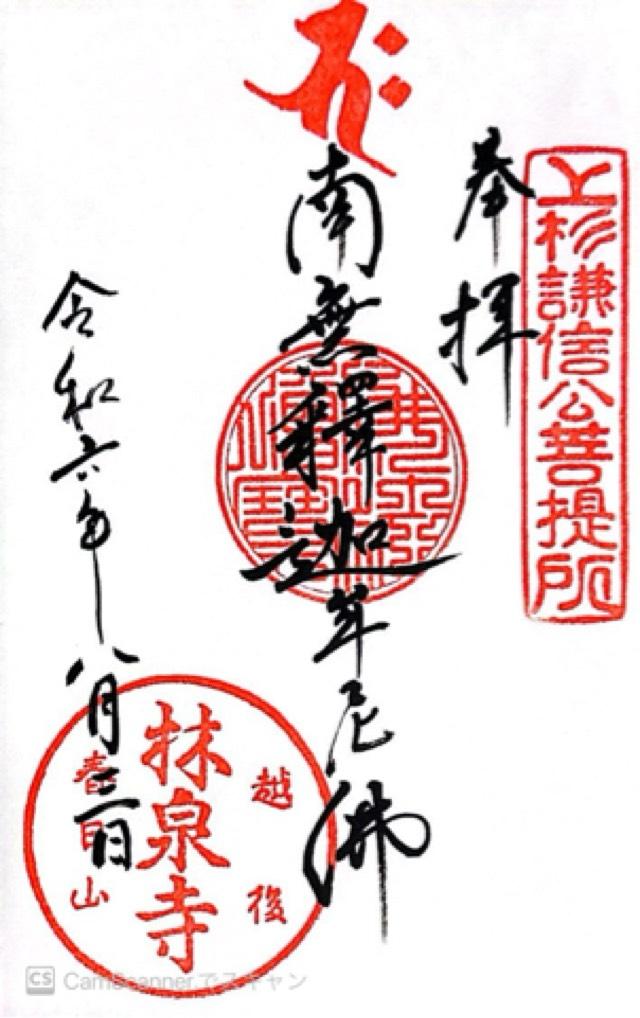 上杉謙信公菩提所
奉拝
南無釋迦牟尼佛
令和六年八月 日
越後
林泉寺
春日山
CS CamScannerでスキャン